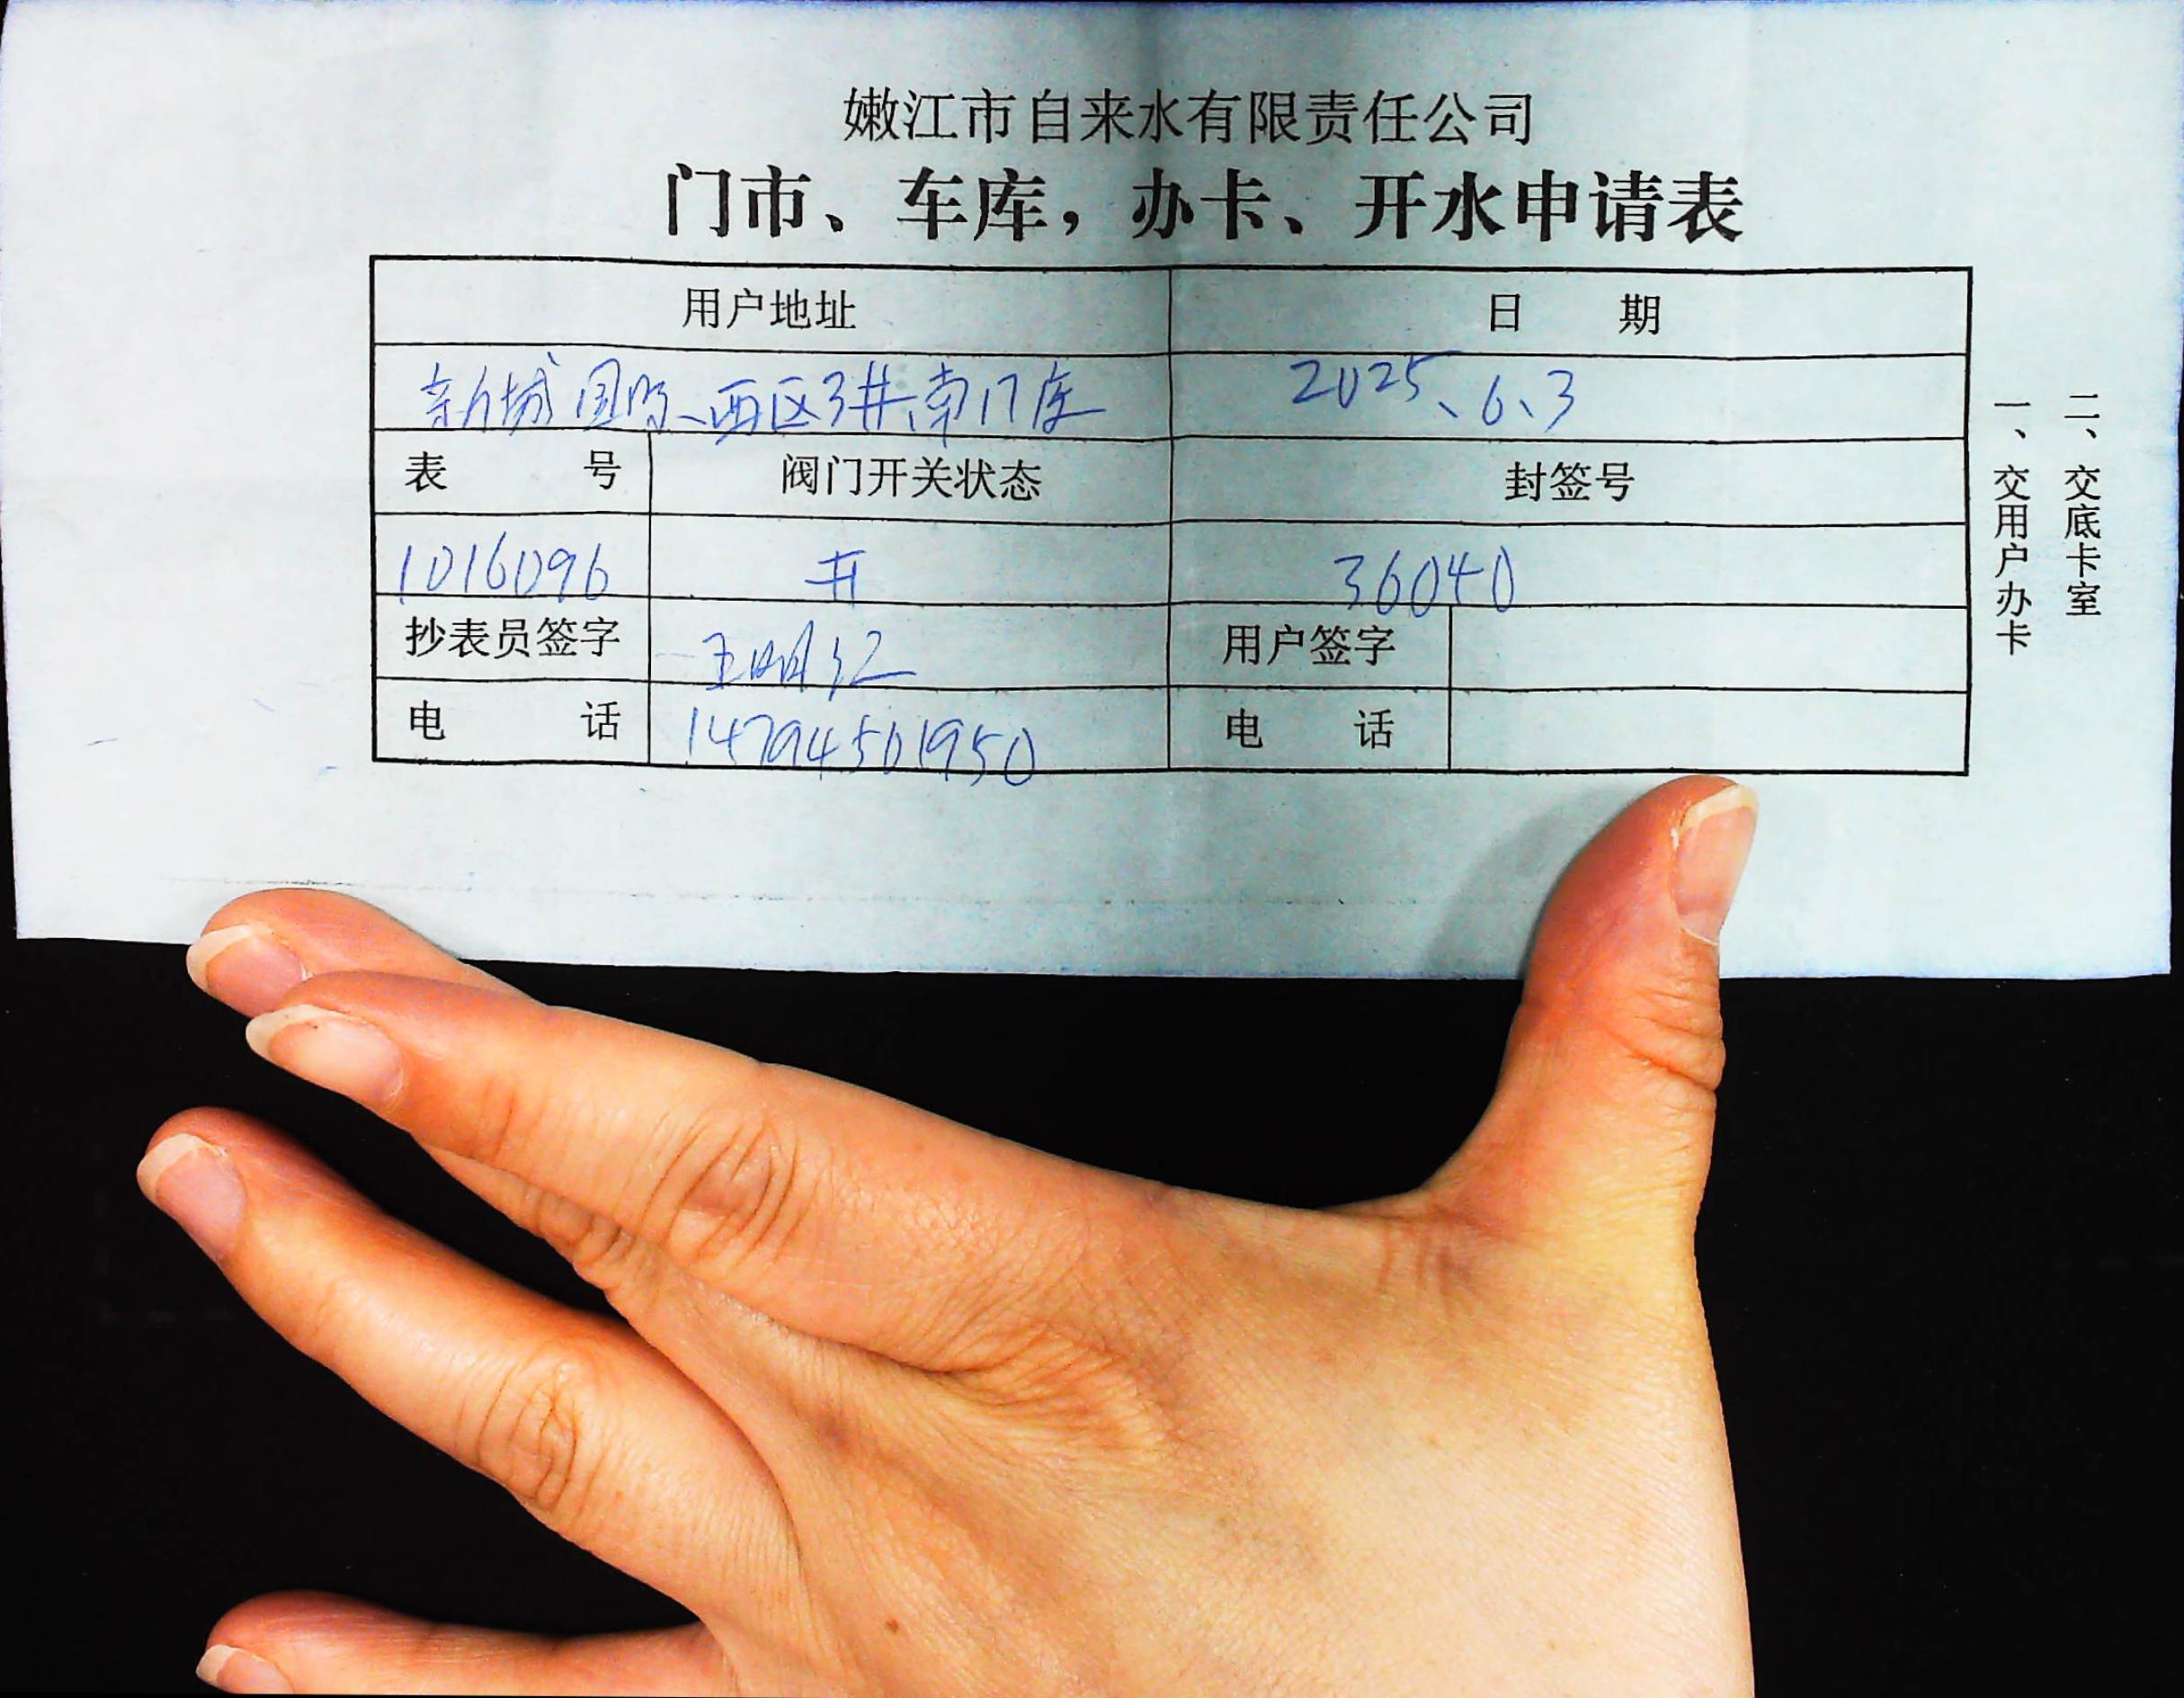 嫩江市自来水有限责任公司
门市、车库，办卡、开水申请表
用户地址 日 期
新城国际、西区3#、南17库 2025、6、3
表 号 阀门开关状态 封签号
1016096 开 36040
抄表员签字 王明红 用户签字
电 话 14794501950 电 话
一、交用户办卡
二、交底卡室